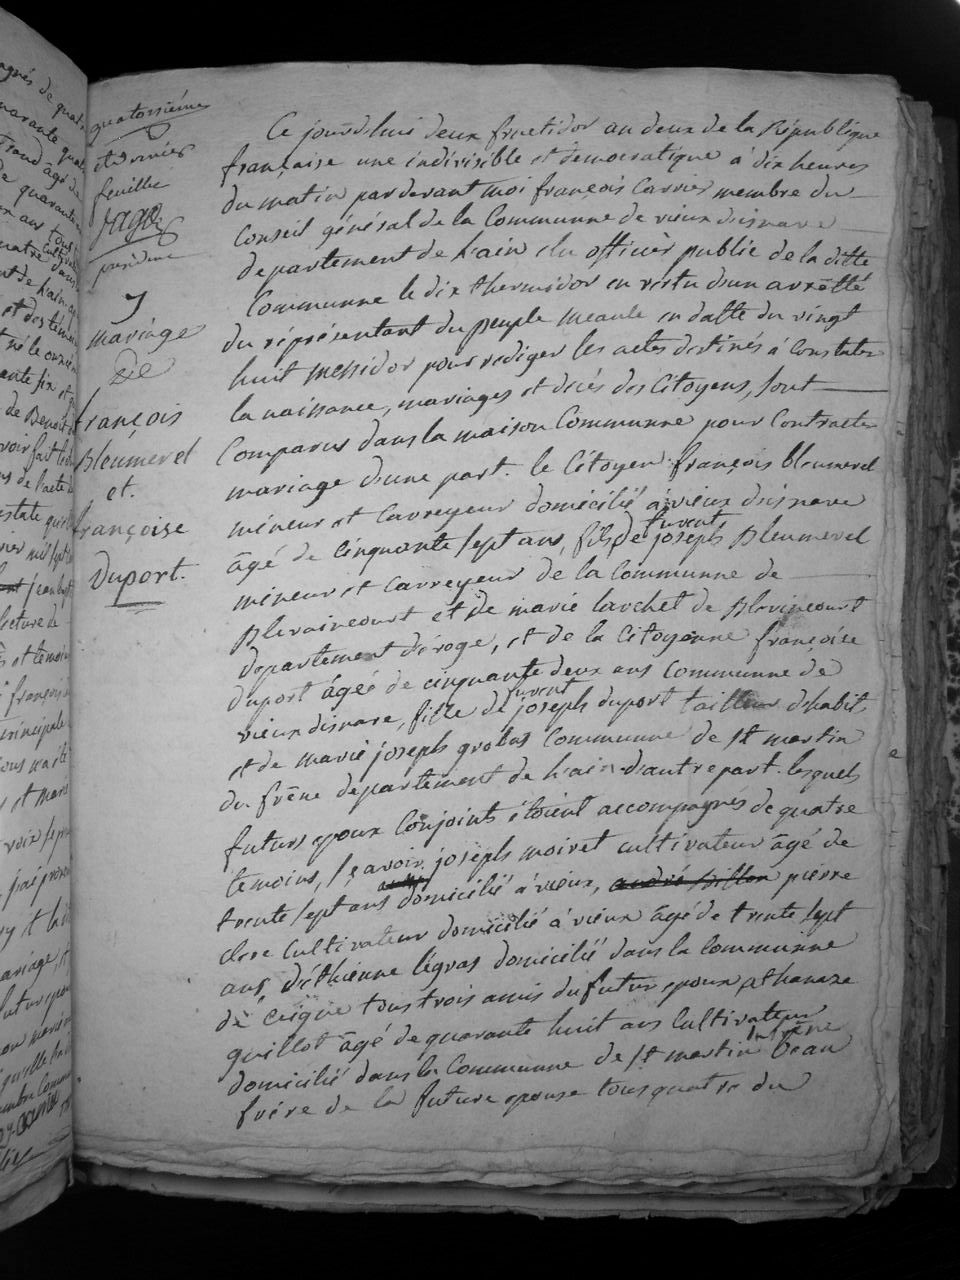 quatorzième
et dernier
feuillet
Jagot
président
7
mariage
de
françois
Bleumerel
et.
françoise
Duport.
Ce jourd'hui deux fructidor an deux de la République
françoise une indivisible et démocratique à dix heures
du matin pardevant moi françois Carrier membre du
Conseil général de la Communne de vieux disnave
departement de h'ain élu officier public de la ditte
Communne le dix thermidor en vertu d'un arretté
du réprésentant du peuple meaule en datte du vingt
huit messidor pour rediger les actes destinés à Constater
la naissance, mariages et décés des Citoyens, sont
Comparus dans la maison Communne pour Contracter
mariage d'une part le Citoyen françois bleumerel
mineur et Carreyeur domicilié à vieux disnave
âgé de cinquante sept ans, fils de fuvent joseph Bleumerel
mineur et Carreyeur de la Communne de
Blevaincourt et de marie larchet de Blevincourt
departement d'évoge, et de la Citoyenne françoise
duport âgéé de cinquante deux ans Communne de
vieux disnave, fille de fuvent joseph duport tailleur d'habit
et de marie joseph grobas Communne de st martin
du frêne departement de h'ain d'autre part. lesquels
futurs epoux Conjoints étoient accompagnés de quatre
temoins, sçavoir joseph moiret cultivateur âgé de
trente sept ans domicilié à vieux, pierre
Clerc Cultivateur domicilié à vieux âgé de trente sept
ans, d'éthienne légras domicilié dans la Communne
de Ceigne tous trois amis du futur epoux athanaze
guillot âgé de quarante huit ans Cultivateur
domicilié dans la Communne de st martin du frêne beau
frére de la future epouse tous quatre du